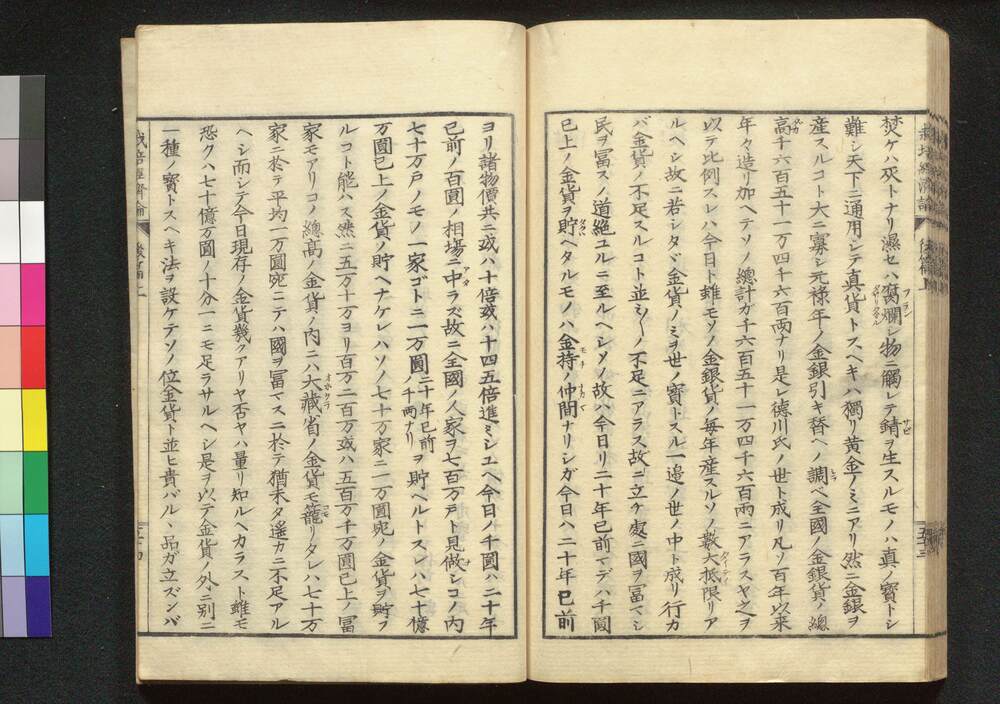 焚ケハ灰トナリ濕セハ腐爛シ物ニ觸レテ錆ヲ生スルモノハ真ノ寳トシ
難シ天下ニ通用シテ真貨トスヘキハ獨リ黄金ノミニアリ然ニ金銀ヲ
産スルコト大ニ寡シ元祿年ノ金銀引キ替ヘノ調ベ全國ノ金銀貨ノ總
高千六百五十一万四千六百両ナリ是レ德川氏ノ世ト成リ凡ソ百年以来
年々造リ加ヘテソノ總計ガ千六百五十一万四千六百兩ニアラスヤ之ヲ
以テ比例スレハ今日ト雖モソノ金銀貨ノ毎年産スルソノ數大抵限リア
ルヘシ故ニ若シタヾ金貨ノミヲ世ノ寳トスル一邉ノ世ノ中ト成リ行カ
バ金貨ノ不足スルコト並シ〳〵ノ不足ニアラス故ニ立ケ處ニ國ヲ冨マシ
民ヲ冨スノ道絶ユルニ至ルヘシソノ故ハ今日リ二十年已前マデハ千圓
已上ノ金貨ヲ貯ヘタルモノハ金持ノ仲間ナリシガ今日ハ二十年已前
ヨリ諸物價共ニ或ハ十倍或ハ十四五倍進ミシユヘ今日ノ千圓ハ二十年
已前ノ百圓ノ相場ニ中ラズ故ニ全國ノ人家ヲ七百万戸ト見做シコノ内
七十万戸ノモノ一家ゴトニ一万圓二十年已前ノ千両ナリヲ貯ヘルトスレハ七十億
万圓已上ノ金貨ノ貯ヘナケレハソノ七十万家ニ一万圓宛ノ金貨ヲ貯フ
ルコト能ハス然ニ五万十万ヨリ百万二百万或ハ五百万千万圓已上ノ冨
家モアリコノ總高ノ金貨ノ内ニハ大藏省ノ金貨モ籠リタレハ七十万
家ニ於テ平均一万圓宛ニテハ國ヲ冨マスニ於テ猶未タ遥カニ不足アル
ヘシ而シテ今日現存ノ金貨幾クアリヤ否ヤハ量リ知ルヘカラスト雖モ
恐クハ七十億万圓ノ十分一ニモ足ラサルヘシ是ヲ以テ金貨ノ外ニ別ニ
一種ノ寳トスヘキ法ヲ設ケテソノ位金貨ト並ヒ貴バルヽ品ガ立ズンバ